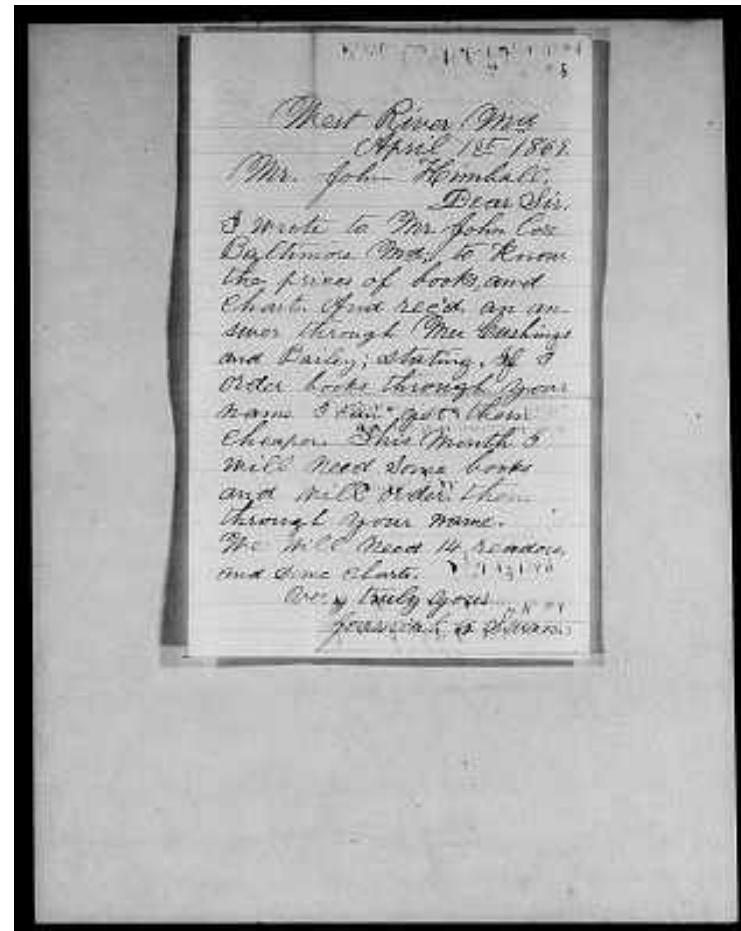 West River, Md
April 1st 1869.
Mr. John Kimball.
Dear Sir.
I wrote to Mr John Core
Baltimore Md, to Know
the prices of books, and
Chart. And rec'd. an an-
swer through Mr Cushings
and Barley; stating, If I
order books through your
name I can get them
cheaper. This Month I
will need some books
and will order them
through your name.
We will need 14, readers,
and some charts.
very truly yours